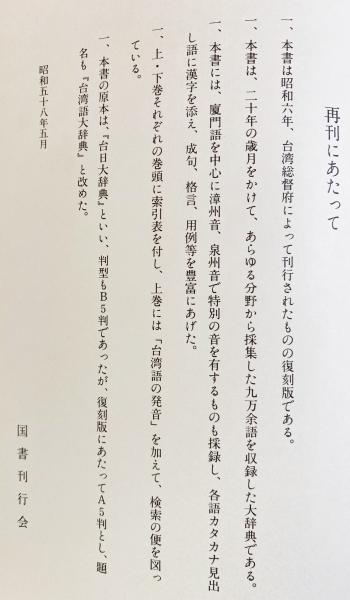 再刊にあたって
一、本書は昭和六年、台湾総督府によって刊行されたものの復刻版である。
一、本書は、二十年の歳月をかけて、あらゆる分野から採集した九万余語を収録した大辞典である。
一、本書には、廈門語を中心に漳州音、泉州音で特別の音を有するものも採録し、各語カタカナ見出
し語に漢字を添え、成句、格言、用例等を豊富にあげた。
一、上・下巻それぞれの巻頭に索引表を付し、上巻には「台湾語の発音」を加えて、検索の便を図っ
ている。
一、本書の原本は、『台日大辞典』といい、判型もB5判であったが、復刻版にあたってA5判とし、題
名も『台湾語大辞典』と改めた。
昭和五十八年五月
国書刊行会